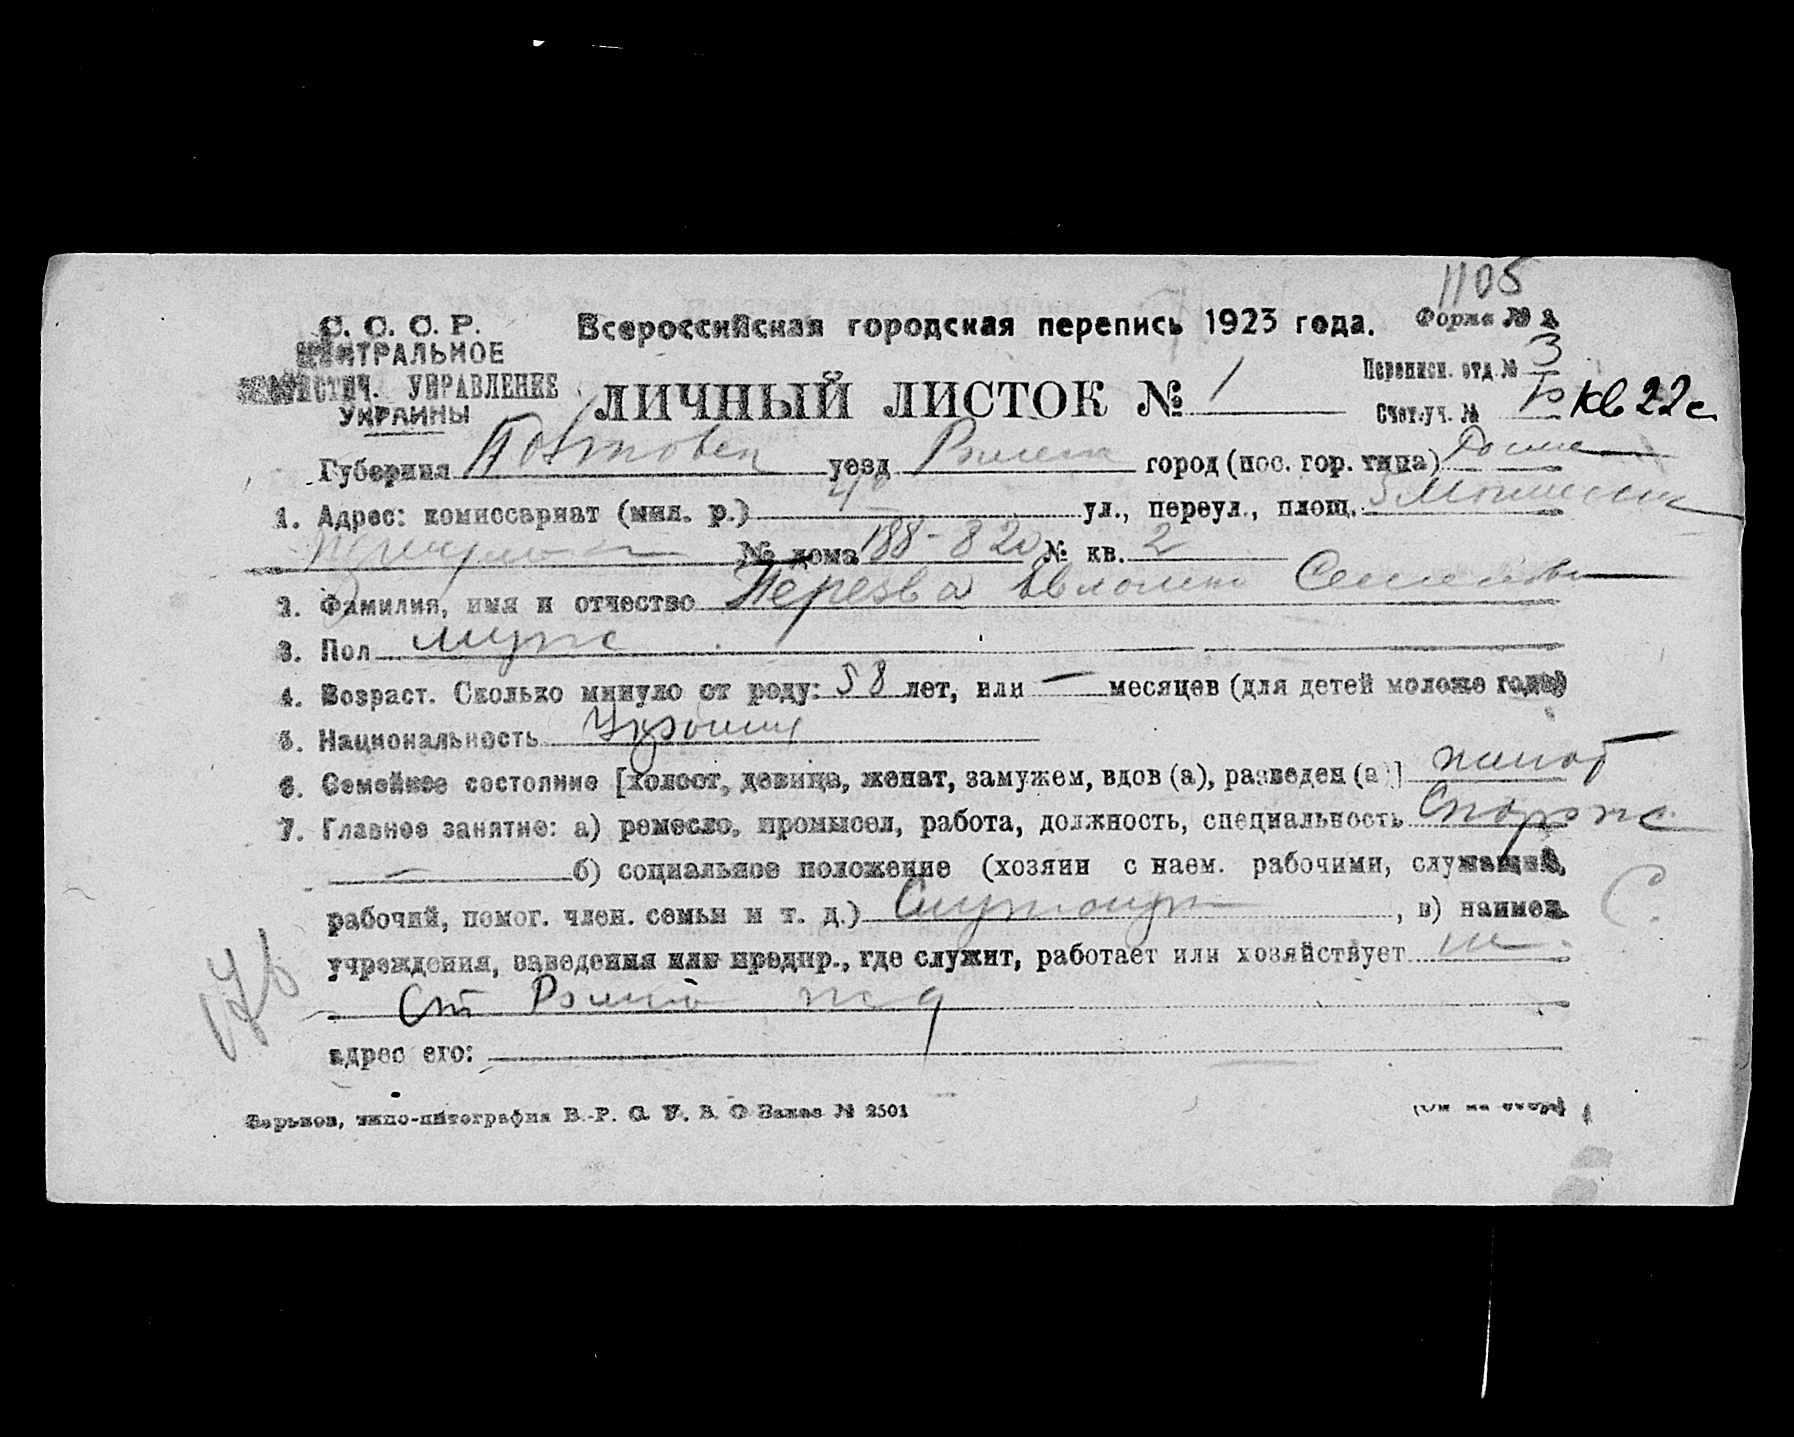 1105
С. С. С. Р.
ЦЕНТРАЛЬНОЕ
СТАТИСТИЧ. УПРАВЛЕНИЕ
УКРАИНЫ
Всероссийская городская перепись 1923 года.
Форма №
ЛИЧНЫЙ ЛИСТОК № 1
Переписн. отд. № 3
Счет.-уч. № кв 22 с
Губерния Полтовск уезд Ромен город (пос. гор. типа) Ромен
1. Адрес: комиссариат (мил. р.) ул., переул., площ. 3
№ дома 188-82 № кв. 2
2. Фамилия, имя и отчество Перезва Семенов
3. Пол муж
4. Возраст. Сколько минуло от роду: 58 лет, или — месяцев (для детей моложе года)
5. Национальность Украинц
6. Семейное состояние [холост, девица, женат, замужем, вдов (а), разведен (а)] женат
7. Главное занятие: а) ремесло, промысел, работа, должность, специальность Сторож
— б) социальное положение (хозяин с наем. рабочими, служащий,
рабочий, помог. член. семьи и т. д.) Служащий, в) наимен.
С.
учреждения, заведения или предпр., где служит, работает или хозяйствует
Ст Ромны ж д
176
адрес его:
Харьков, типо-литография В. Заказ № 2501